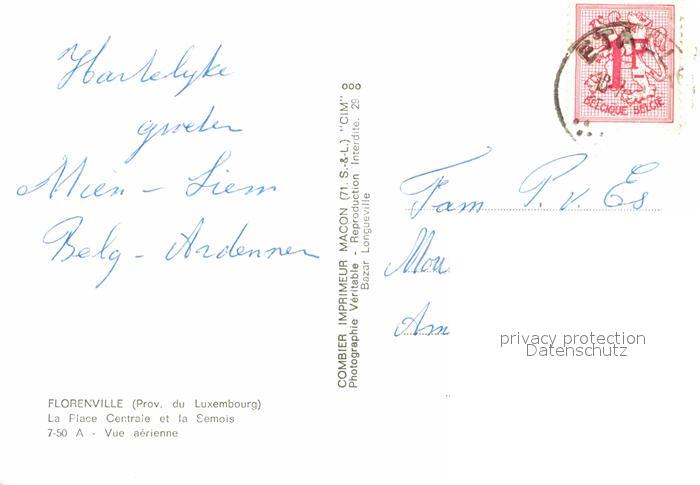 Hartelyke
groeten
Mien - Siem
Belg - Ardennen
FLORENVILLE (Prov. du Luxembourg)
La Place Centrale et la Semois
7-50 A - Vue aérienne
COMBIER IMPRIMEUR MACON (71. S.-&-L.) "CIM"
Photographie Véritable - Reproduction Interdite. 29
Bazar Longueville
ETA
1F
BELGIQUE BELGIË
Fam P. v. Es
Mou
Am
privacy protection
Datenschutz